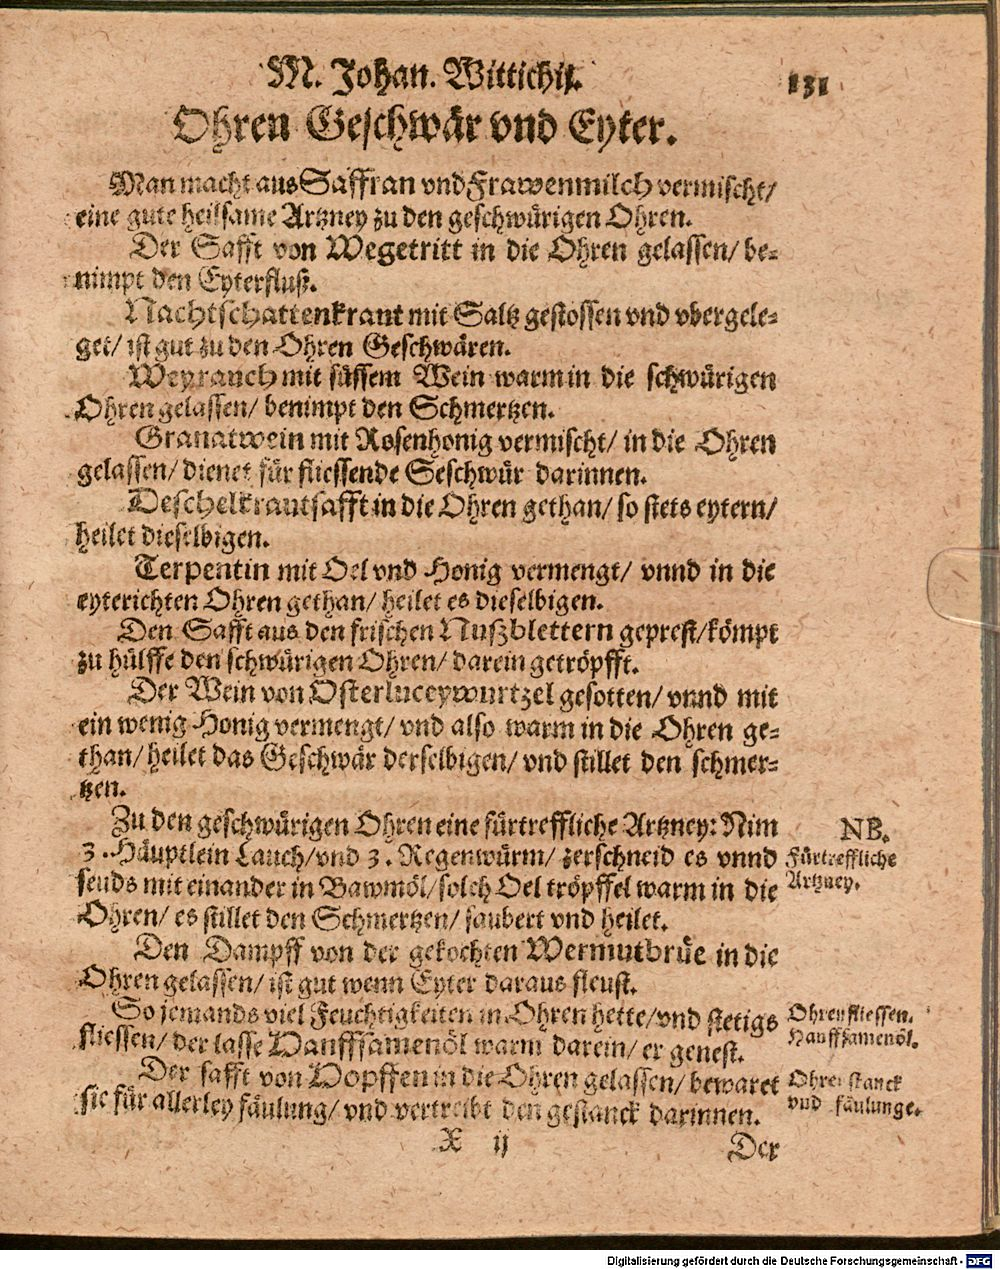 M. Johan. Wittichii.
131
Ohren Geschwär vnd Eyter.
Man macht aus Saffran vnd Frawenmilch vermischt/
eine gute heilsame Artzney zu den geschwürigen Ohren.
Der Safft von Wegetritt in die Ohren gelassen/ be-
nimpt den Eyterfluß.
Nachtschattenkraut mit Saltz gestossen vnd vbergele-
get/ ist gut zu den Ohren Geschwären.
Weyrauch mit süssem Wein warm in die schwürigen
Ohren gelassen/ benimpt den Schmertzen.
Granatwein mit Rosenhonig vermischt/ in die Ohren
gelassen/ dienet für fliessende Geschwür darinnen.
Deschelkrautsafft in die Ohren gethan/ so stets eytern/
heilet dieselbigen.
Terpentin mit Oel vnd Honig vermengt/ vnnd in die
eyterichten Ohren gethan/ heilet es dieselbigen.
Den Safft aus den frischen Nußblettern geprest/ kömpt
zu hülffe den schwürigen Ohren/ darein getröpfft.
Der Wein von Osterluceywurtzel gesotten/ vnnd mit
ein wenig Honig vermengt/ vnd also warm in die Ohren ge-
than/ heilet das Geschwär derselbigen/ vnd stillet den schmer-
tzen.
Zu den geschwürigen Ohren eine fürtreffliche Artzney: Nim
3. Häuptlein Lauch/ vnd 3. Regenwürm/ zerschneid es vnnd
seuds mit einander in Bawmöl/ solch Oel tröpffel warm in die
Ohren/ es stillet den Schmertzen/ saubert vnd heilet.
NB.
Fürtreffliche
Artzney.
Den Dampff von der gekochten Wermutbrüe in die
Ohren gelassen/ ist gut wenn Eyter daraus fleust.
So jemands viel Feuchtigkeiten in Ohren hette/ vnd stetigs
fliessen/ der lasse Hanffsamenöl warm darein/ er genest.
Ohren fliessen.
Hanffsamenöl.
Der safft von Hopffen in die Ohren gelassen/ bewaret
sie für allerley fäulung/ vnd vertreibt den gestanck darinnen.
Ohren stanck
vnd fäulunge.
X ij
Der
Digitalisierung gefördert durch die Deutsche Forschungsgemeinschaft - DFG